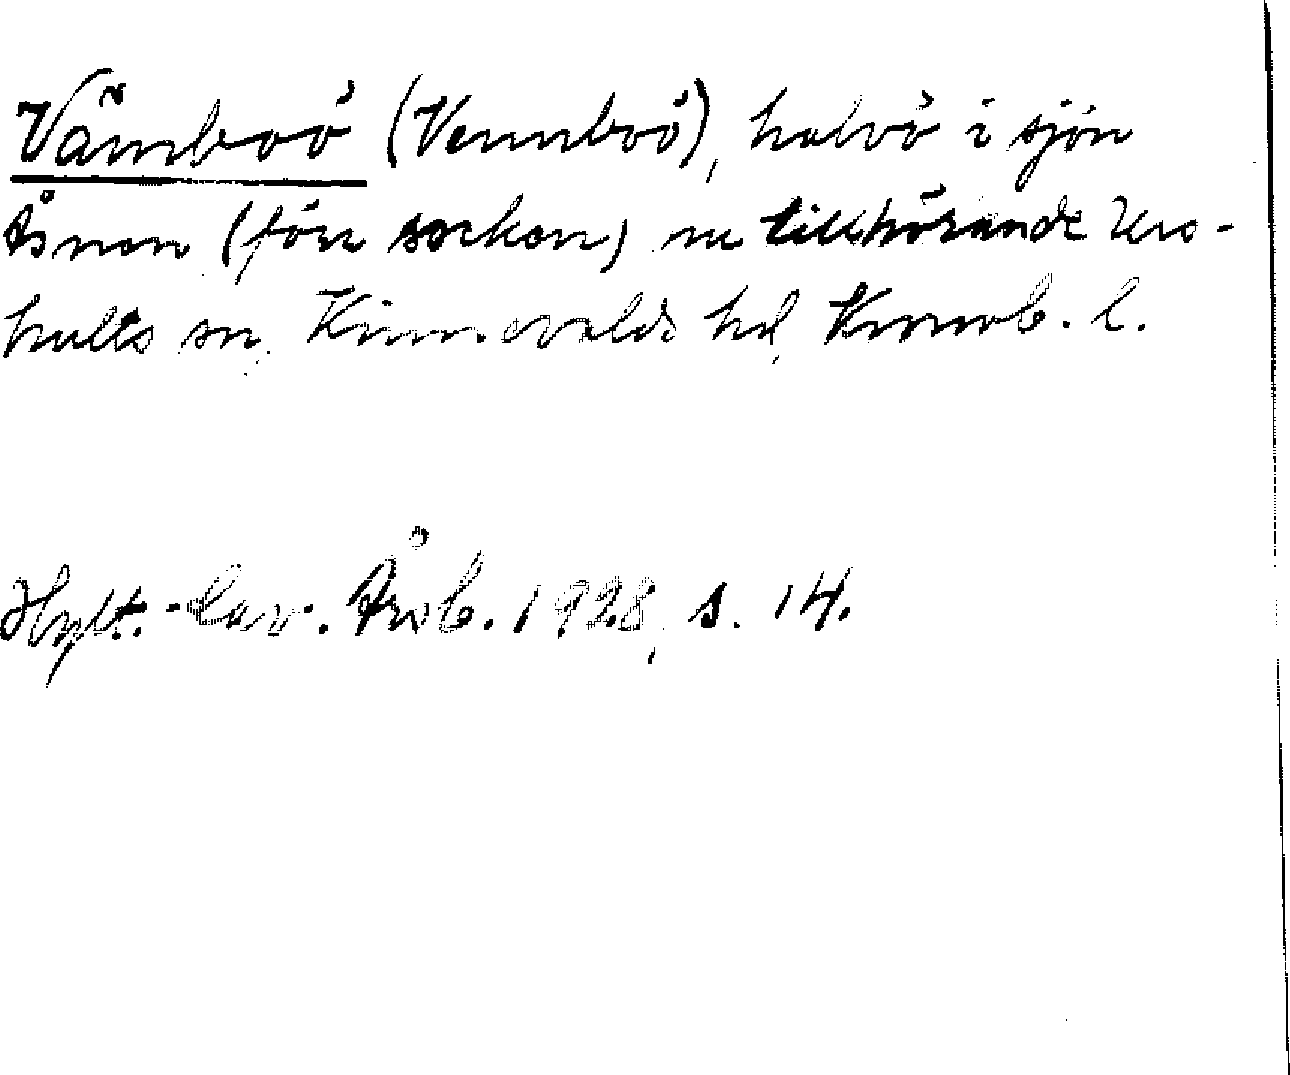 Vämboö (Vemboö), halvö i sjön
Åsnen (förr socken) nu tillhörande Uro-
hults sn, Kinnevalds hd, Kronob. l.
Hylt.-Cav. Årsb. 1928, s. 14.